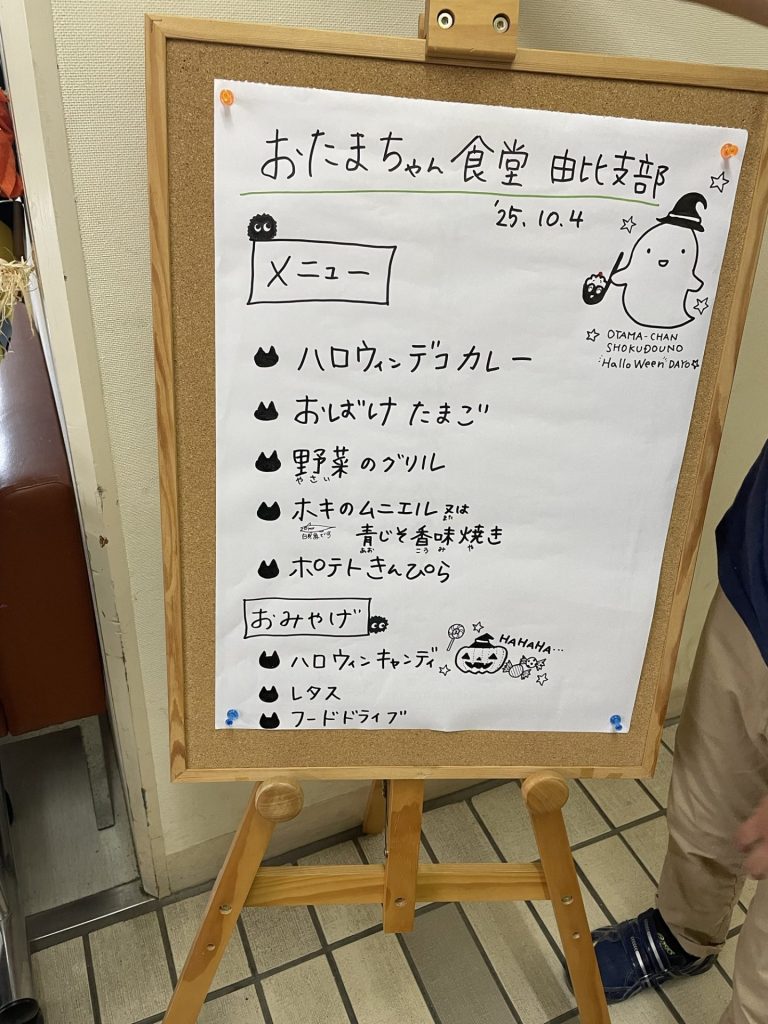 おたまちゃん食堂 由比支部
'25.10.4
メニュー
OTAMA-CHAN
SHOKUDOUNO
"HalloWeen" DAYO
ハロウィンデコカレー
おばけたまご
野菜のグリル
やさい
ホキのムニエル 又は
また
白身魚です
青じそ香味焼き
あお こうみ や
ポテトきんぴら
おみやげ
HAHAHA...
ハロウィンキャンディ
レタス
フードドライブ